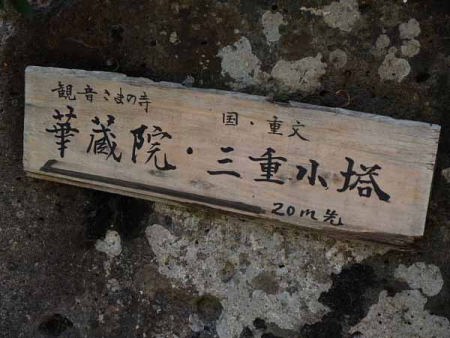 観音こまの寺
国・重文
華蔵院・三重小塔
20m先